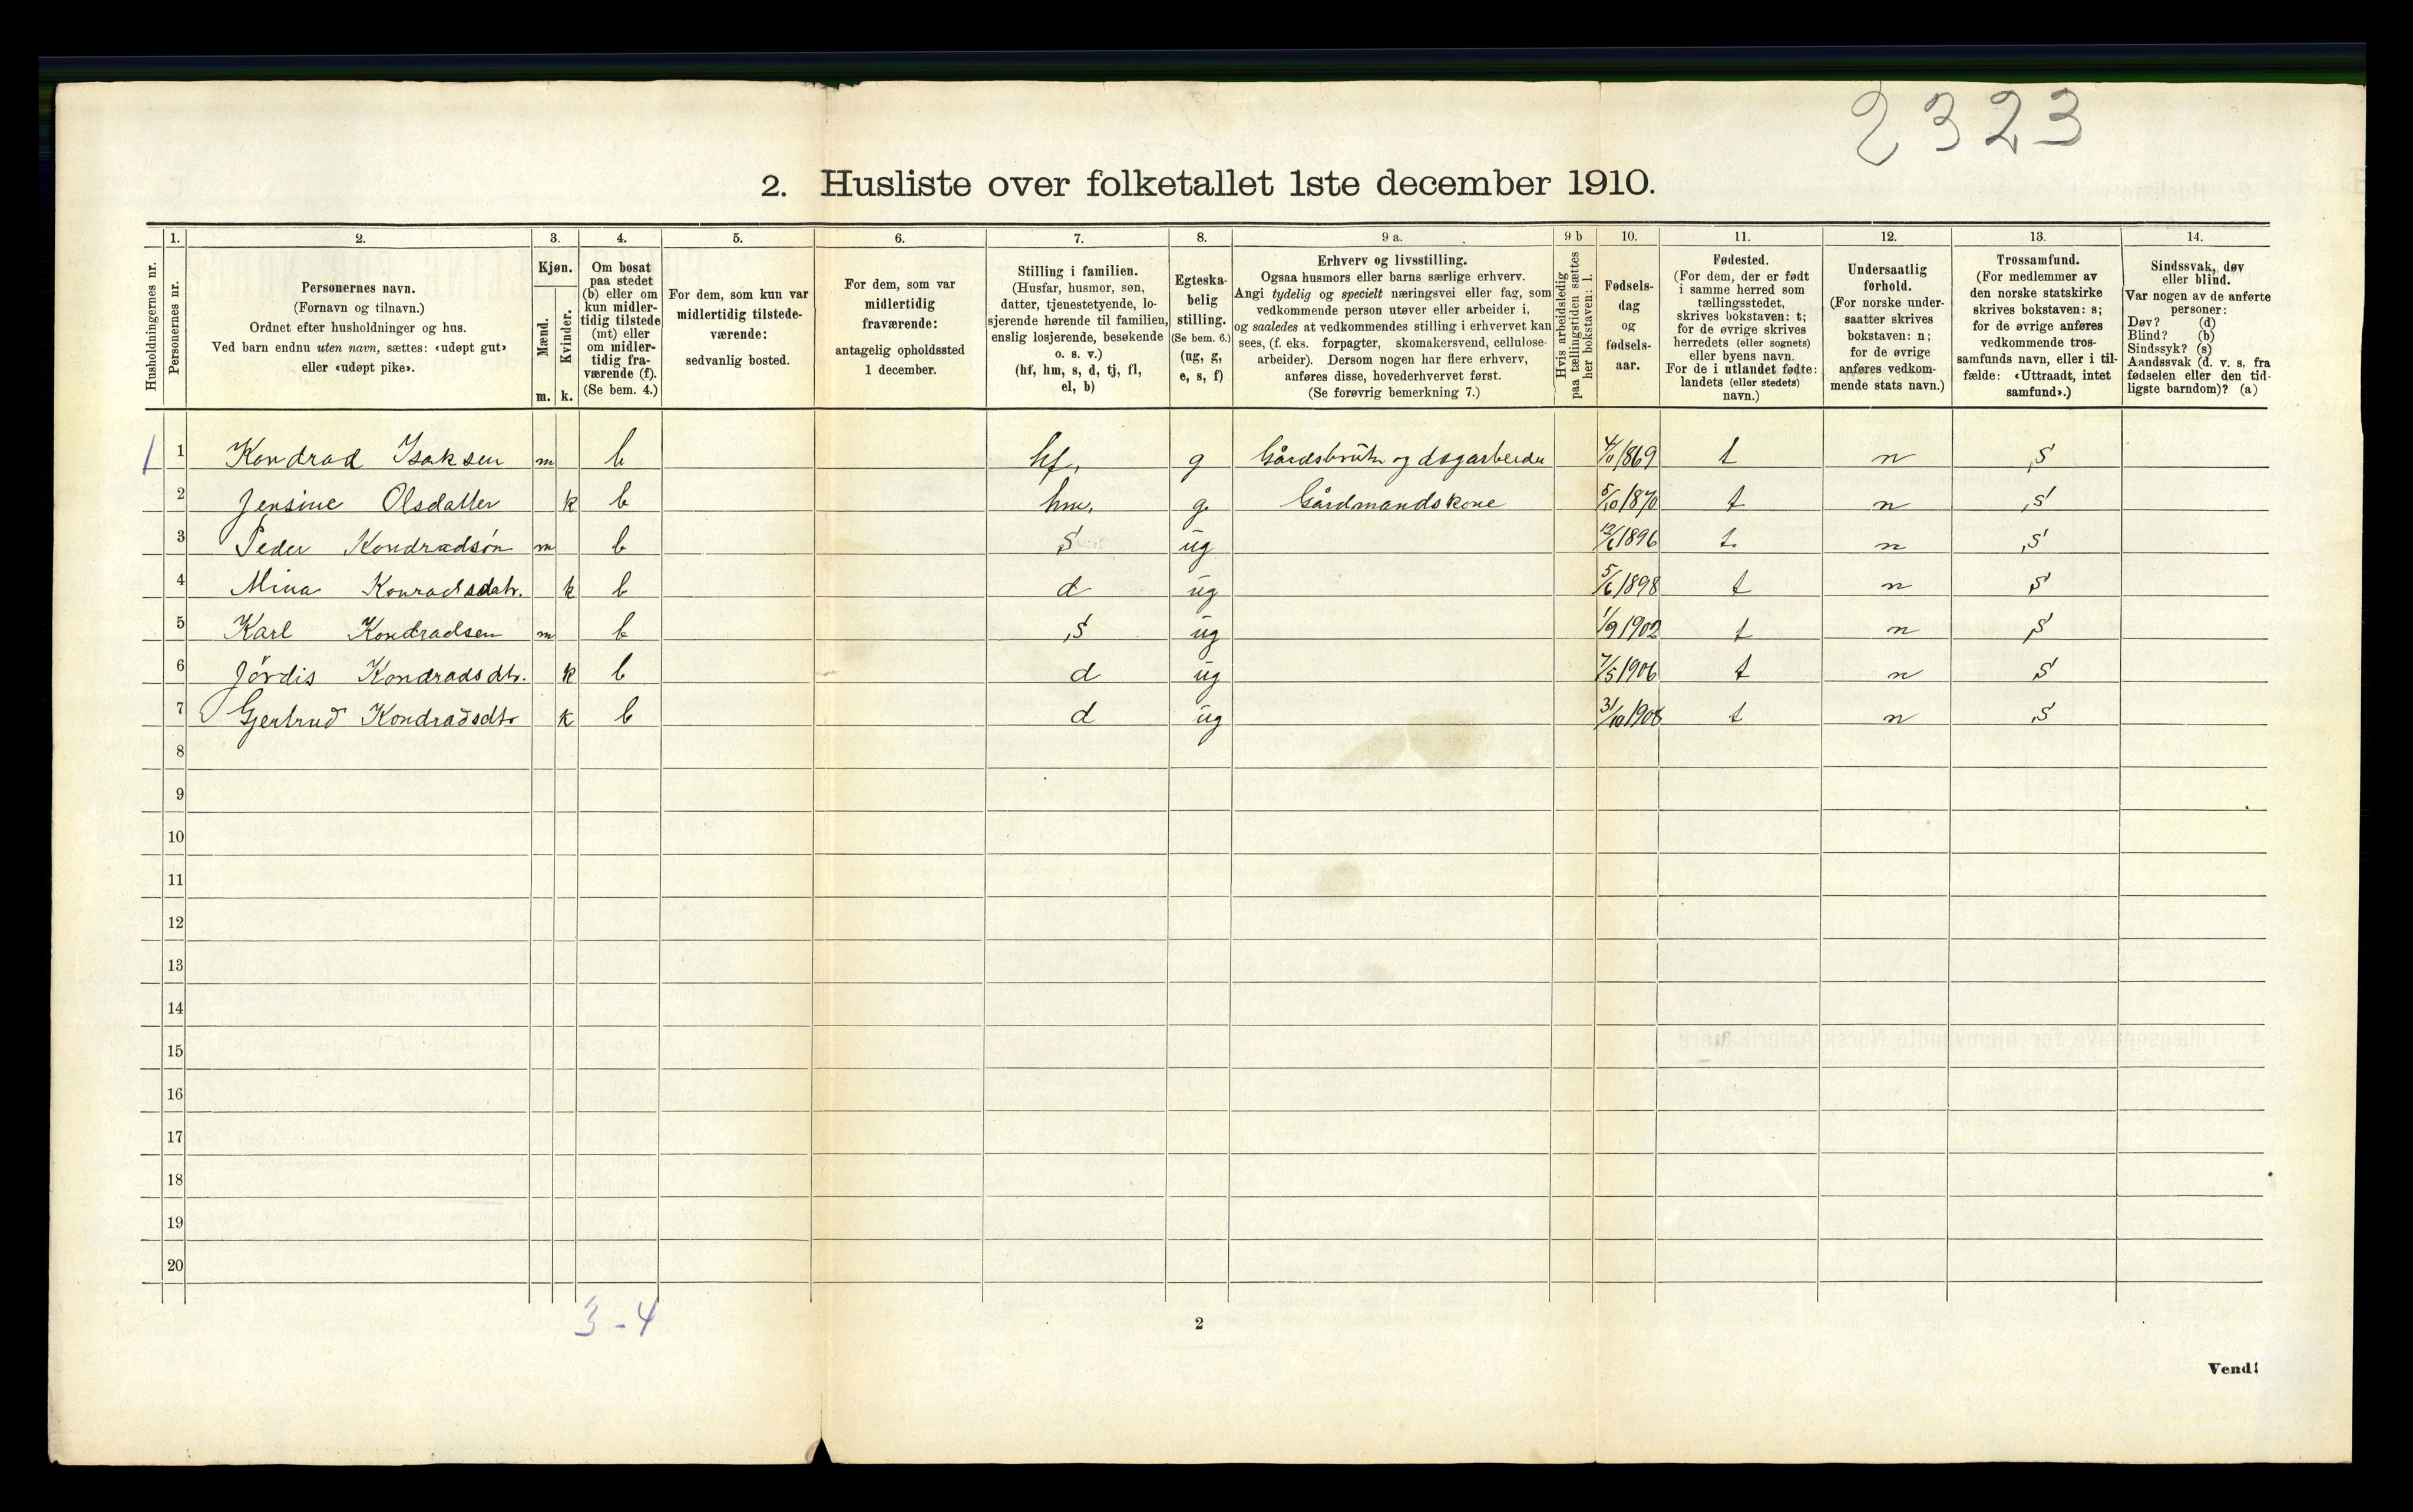 2323
2. Husliste over folketallet 1ste december 1910.
Husholdningernes nr.
1. Personernes nr.
2. Personernes navn.
(Fornavn og tilnavn.)
Ordnet efter husholdninger og hus.
Ved barn endnu uten navn, sættes: «udøpt gut»
eller «udøpt pike».
3. Kjøn.
Mænd. m.
Kvinder. k.
4. Om bosat
paa stedet
(b) eller om
kun midler-
tidig tilstede
(mt) eller
om midler-
tidig fra-
værende (f).
(Se bem. 4.)
5. For dem, som kun var
midlertidig tilstede-
værende:
sedvanlig bosted.
6. For dem, som var
midlertidig
fraværende:
antagelig opholdssted
1 december.
7. Stilling i familien.
(Husfar, husmor, søn,
datter, tjenestetyende, lo-
sjerende hørende til familien,
enslig losjerende, besøkende
o. s. v.)
(hf, hm, s, d, tj, fl,
el, b)
8. Egteska-
belig
stilling.
(Se bem. 6.)
(ug, g,
e, s, f)
9 a. Erhverv og livsstilling.
Ogsaa husmors eller barns særlige erhverv.
Angi tydelig og specielt næringsvei eller fag, som
vedkommende person utøver eller arbeider i,
og saaledes at vedkommendes stilling i erhvervet kan
sees, (f. eks. forpagter, skomakersvend, cellulose-
arbeider). Dersom nogen har flere erhverv,
anføres disse, hovederhvervet først.
(Se forøvrig bemerkning 7.)
9 b Hvis arbeidsledig
paa tællingstiden sættes
her bokstaven: l.
10. Fødsels-
dag
og
fødsels-
aar.
11. Fødested.
(For dem, der er født
i samme herred som
tællingsstedet,
skrives bokstaven: t;
for de øvrige skrives
herredets (eller sognets)
eller byens navn.
For de i utlandet fødte:
landets (eller stedets)
navn.)
12. Undersaatlig
forhold.
(For norske under-
saatter skrives
bokstaven: n;
for de øvrige
anføres vedkom-
mende stats navn.)
13. Trossamfund.
(For medlemmer av
den norske statskirke
skrives bokstaven: s;
for de øvrige anføres
vedkommende tros-
samfunds navn, eller i til-
fælde: «Uttraadt, intet
samfund».)
14. Sindssvak, døv
eller blind.
Var nogen av de anførte
personer:
Døv? (d)
Blind? (b)
Sindssyk? (s)
Aandssvak (d. v. s. fra
fødselen eller den tid-
ligste barndom)? (a)
1 1 Kondrad Isaksen m b hf, g Gårdsbruker og dagarbeider 4/11 1869 t n s
2 Jensine Olsdatter k b hm, g. Gårdmandskone 5/10 1870 t n s
3 Peder Kondradsøn m b s ug 12/6 1896 t. n s
4 Mina Konradsdatr. k b d ug 5/6 1898 t n s
5 Karl Kondradsen m b s ug 1/9 1902 t n s
6 Jördis Kondradsdtr. k b d ug 7/5 1906 t n s
7 Gjertrud Kondradsdtr k b d ug 31/10 1908 t n s
8
9
10
11
12
13
14
15
16
17
18
19
20
3-4
2
Vend!